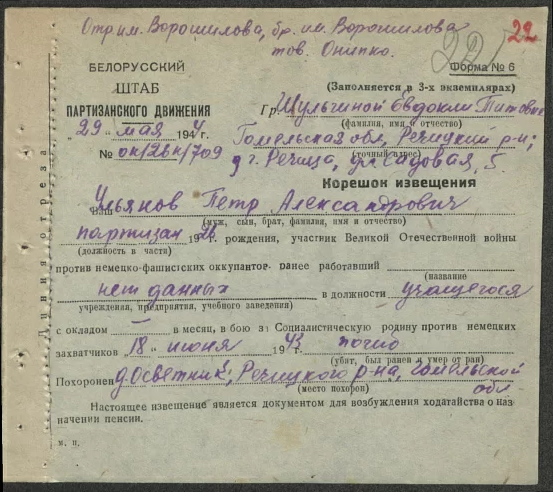 Отр им. Ворошилова, бр. им. Ворошилова
тов. Онипко.
22
22
БЕЛОРУССКИЙ
ШТАБ
ПАРТИЗАНСКОГО ДВИЖЕНИЯ
„29" мая 1944 г.
№ ок/2вк/709
Форма № 6
(Заполняется в 3-х экземплярах)
Гр. Шульгиной Евдокии Титовне
(фамилия, имя и отчество)
Гомельская обл, Речицкий р-н;
(точный адрес)
г. Речица, ул Садовая, 5.
Корешок извещения
Ваш Ульянов Петр Александрович
(муж, сын, брат, фамилия, имя и отчество)
партизан 1926 г. рождения, участник Великой Отечественной войны
(должность в части)
против немецко-фашистских оккупантов ранее работавший
(название
нет данных в должности учащегося
учреждения, предприятия, учебного заведения)
с окладом — в месяц, в бою за Социалистическую родину против немецких
захватчиков „18" июня 1943 погиб
(убит, был ранен и умер от ран)
Похоронен д. Осветник, Речицкого р-на, Гомельской
(место похорон)
обл
Настоящее извещение является документом для возбуждения ходатайства о наз-
начении пенсии.
м. п.
Линия отреза